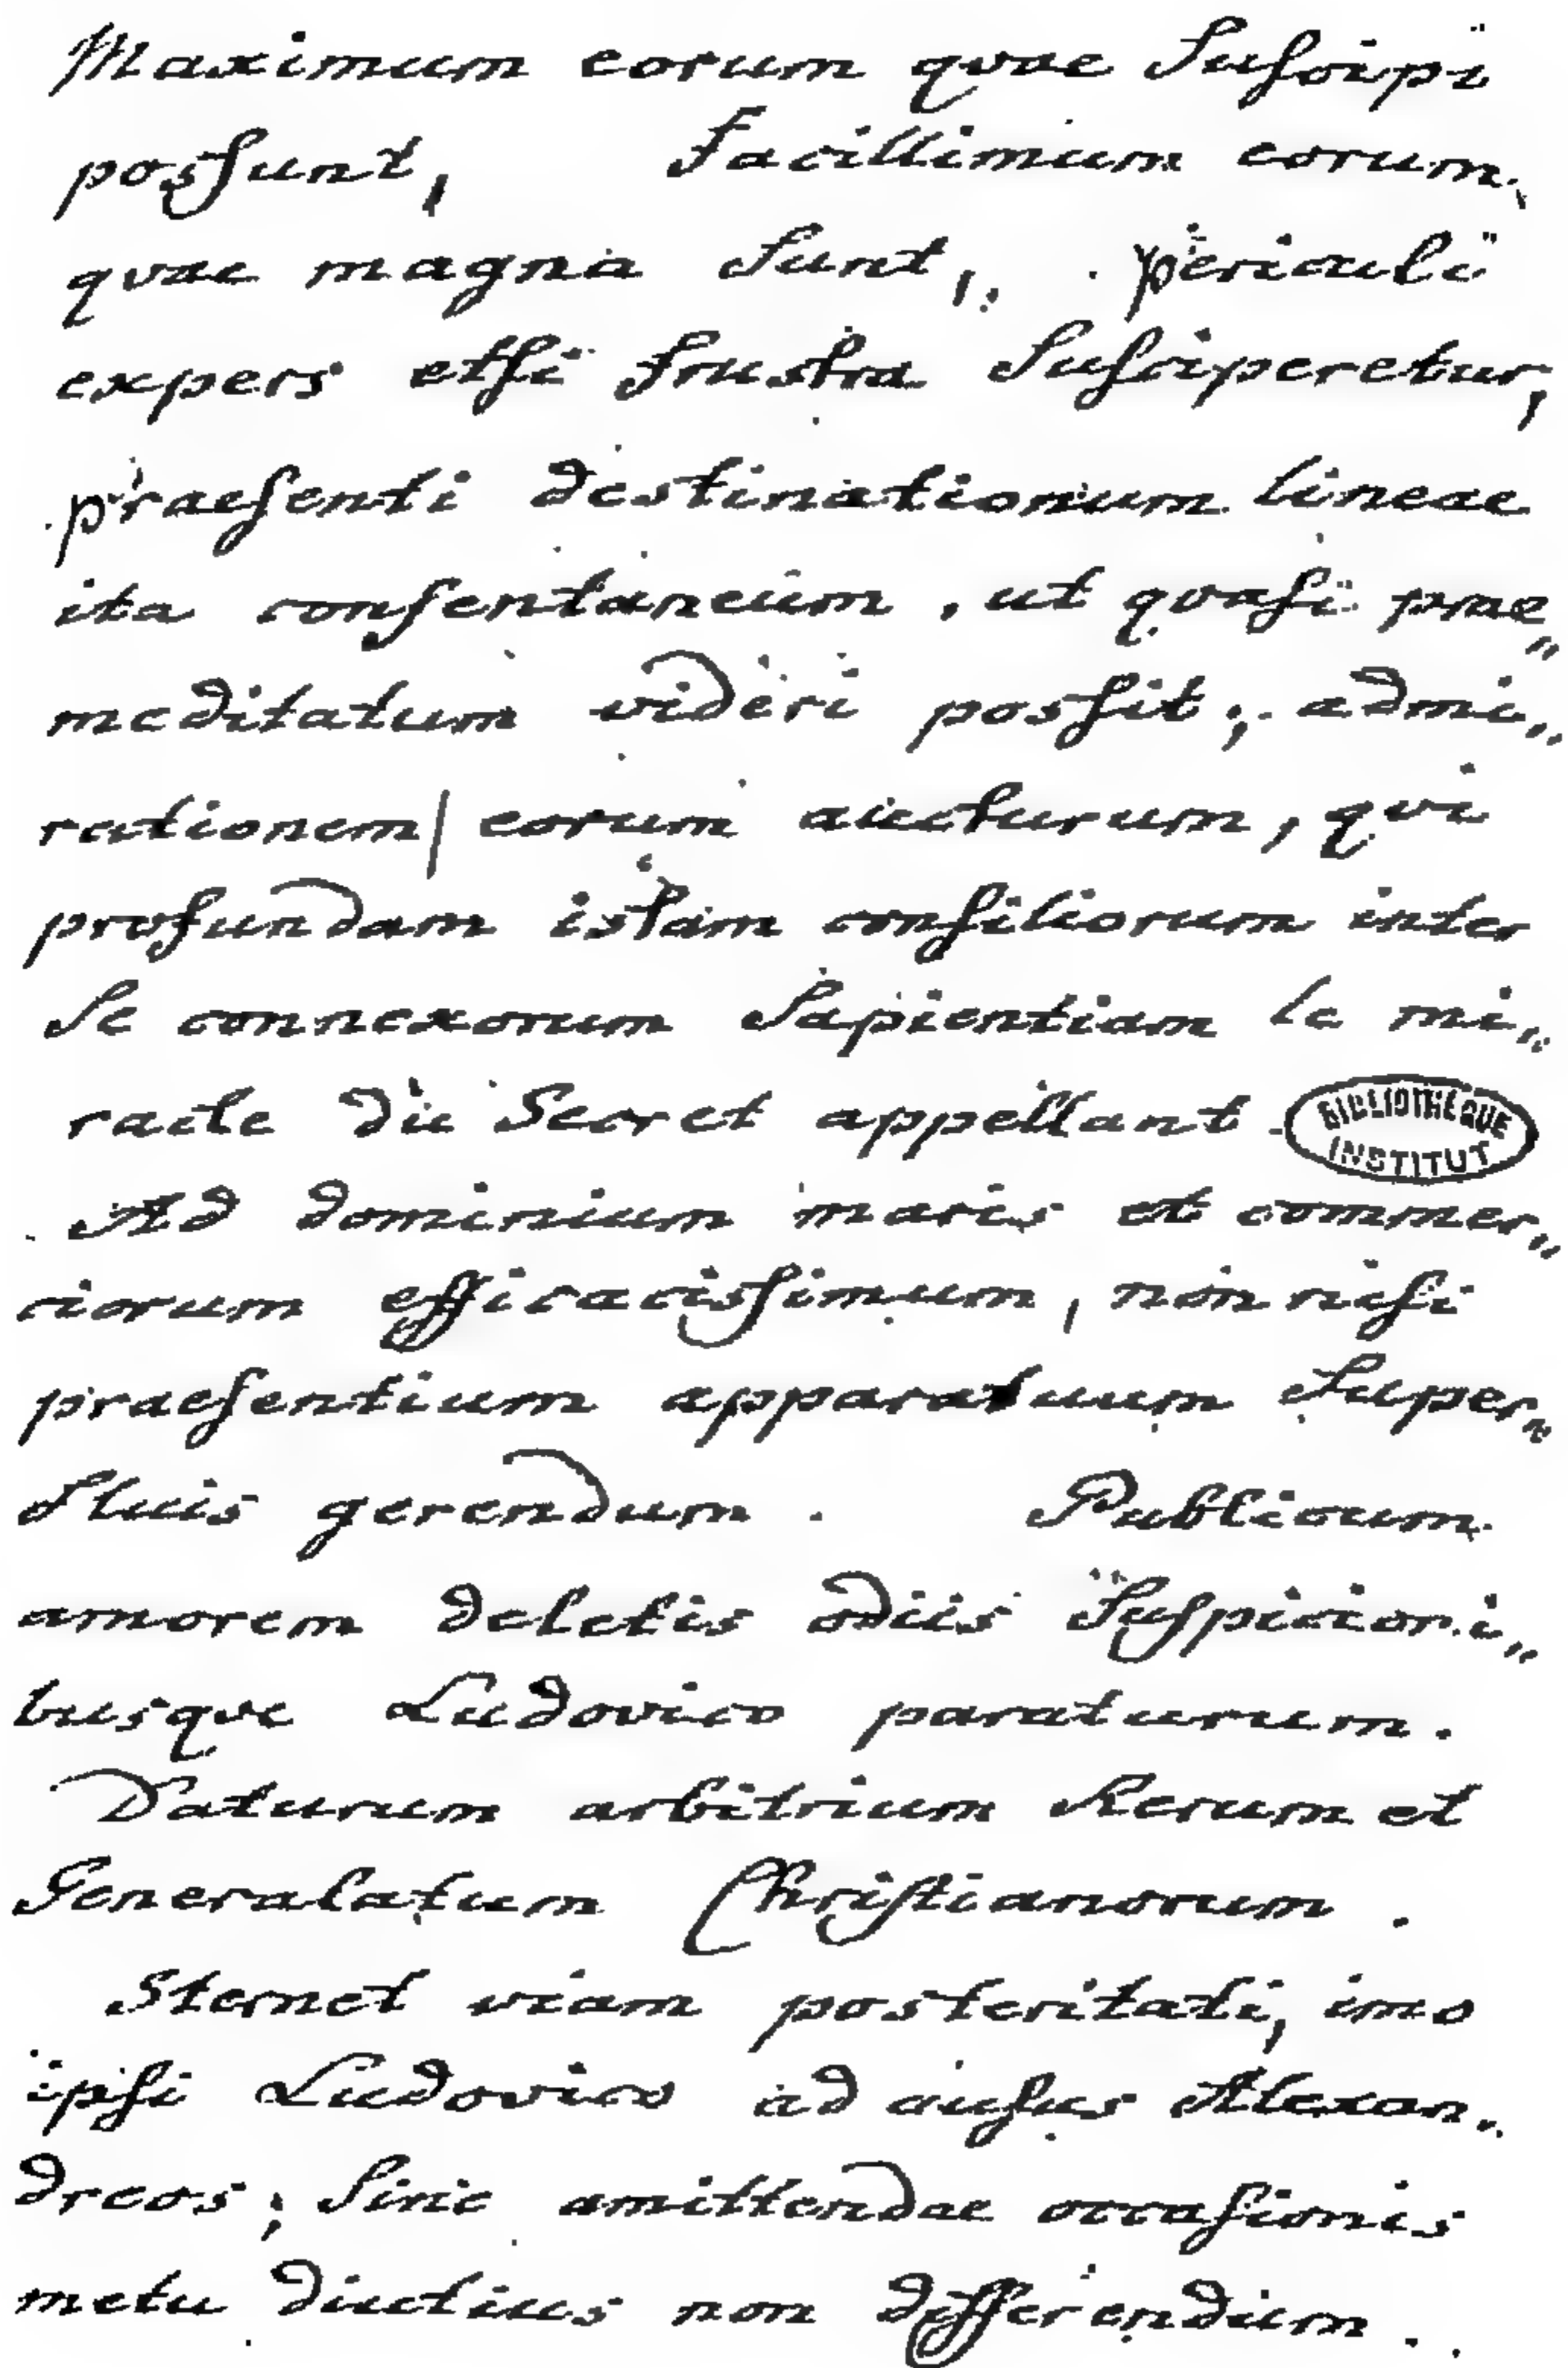 Maximum eorum qvae Suscipi
possunt, Facillimum eorum,
qvae magna Sunt, periculi
expers etsi frustra Susciperetur,
praesenti destinationum lineae
ita consentaneum, ut qvasi prae„
meditatum videri possit; admi„
rationem / eorum aucturum, qvi
profundam istam consiliorum inter
Se connexorum Sapientiam le mi„
racle du Secret appellant.
BIBLIOTHÈQUE
INSTITUT
Ad dominium maris et commer„
ciorum efficacissimum, non nisi
praesentium apparatuum Super„
fluis gerendum. Publicum
amorem deletis odiis Suspicioni„
busqve Ludovico paraturum.
Daturum arbitrium Rerum et
Generalatum Christianorum.
Sternet viam posteritati, imo
ipsi Ludovico ad ausus Alexan„
dreos; Sine amittendae occasionis
metu diutius non differendum.